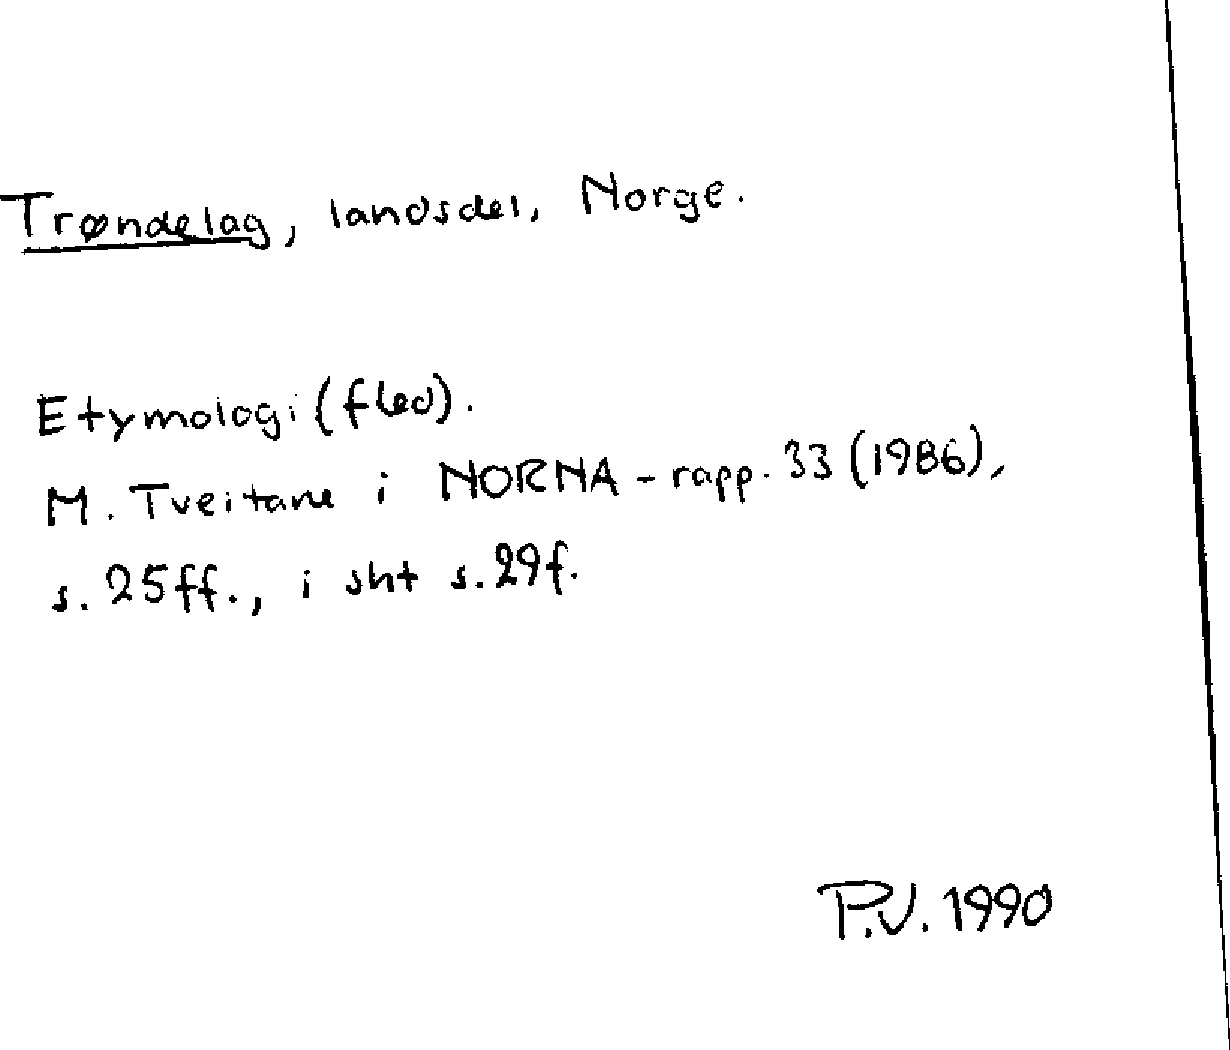 Trøndelag, landsdel, Norge.
Etymologi (fled).
M. Tveitane i NORNA-rapp. 33 (1986),
s. 25ff., i sht s. 29f.
P.V. 1990